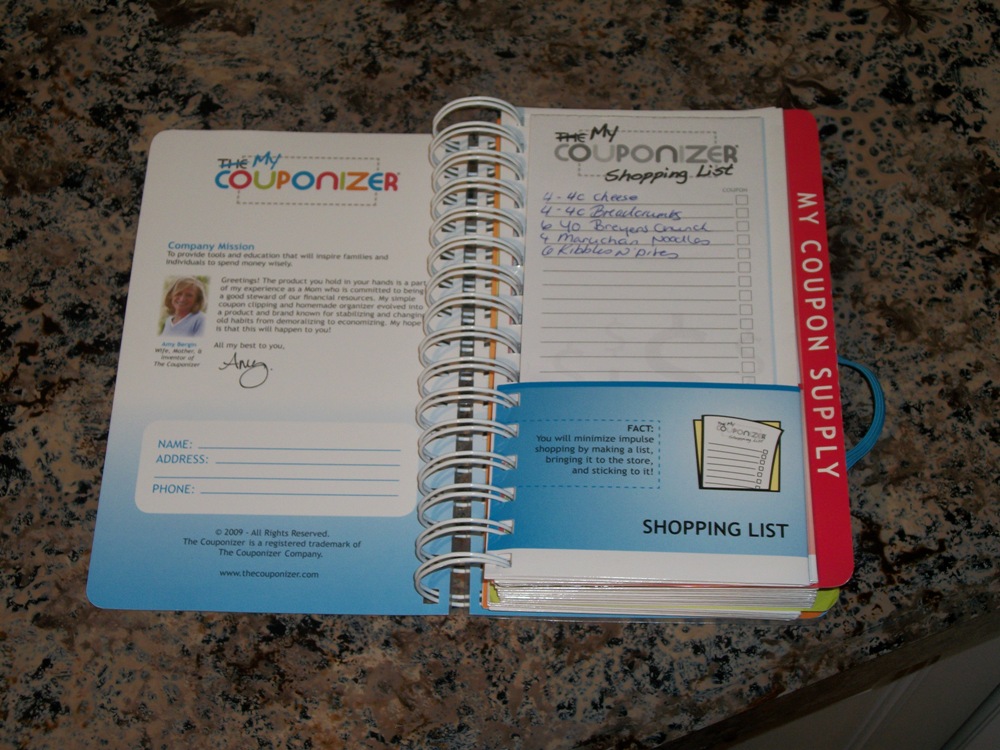 THE My
COUPONIZER
Company Mission
To provide tools and education that will inspire families and
individuals to spend money wisely.
Greetings! The product you hold in your hands is a part
of my experience as a Mom who is committed to being
a good steward of our financial resources. My simple
coupon clipping and homemade organizer evolved into
a product and brand known for stabilizing and changing
old habits from demoralizing to economizing. My hope
is that this will happen to you!
Amy Bergin
Wife, Mother, &
Inventor of
The Couponizer
All my best to you,
Amy
NAME:
ADDRESS:
PHONE:
© 2009 - All Rights Reserved.
The Couponizer is a registered trademark of
The Couponizer Company.
www.thecouponizer.com
THE My
COUPONIZER
Shopping List
COUPON
4 - 4c cheese
4 - 4c Breadcrumbs
6 Yo Breyers Crunch
4 Maruchan Noodles
6 Kibbles n Bites
FACT:
You will minimize impulse
shopping by making a list,
bringing it to the store,
and sticking to it!
COUPONIZER
Shopping List
SHOPPING LIST
MY COUPON SUPPLY